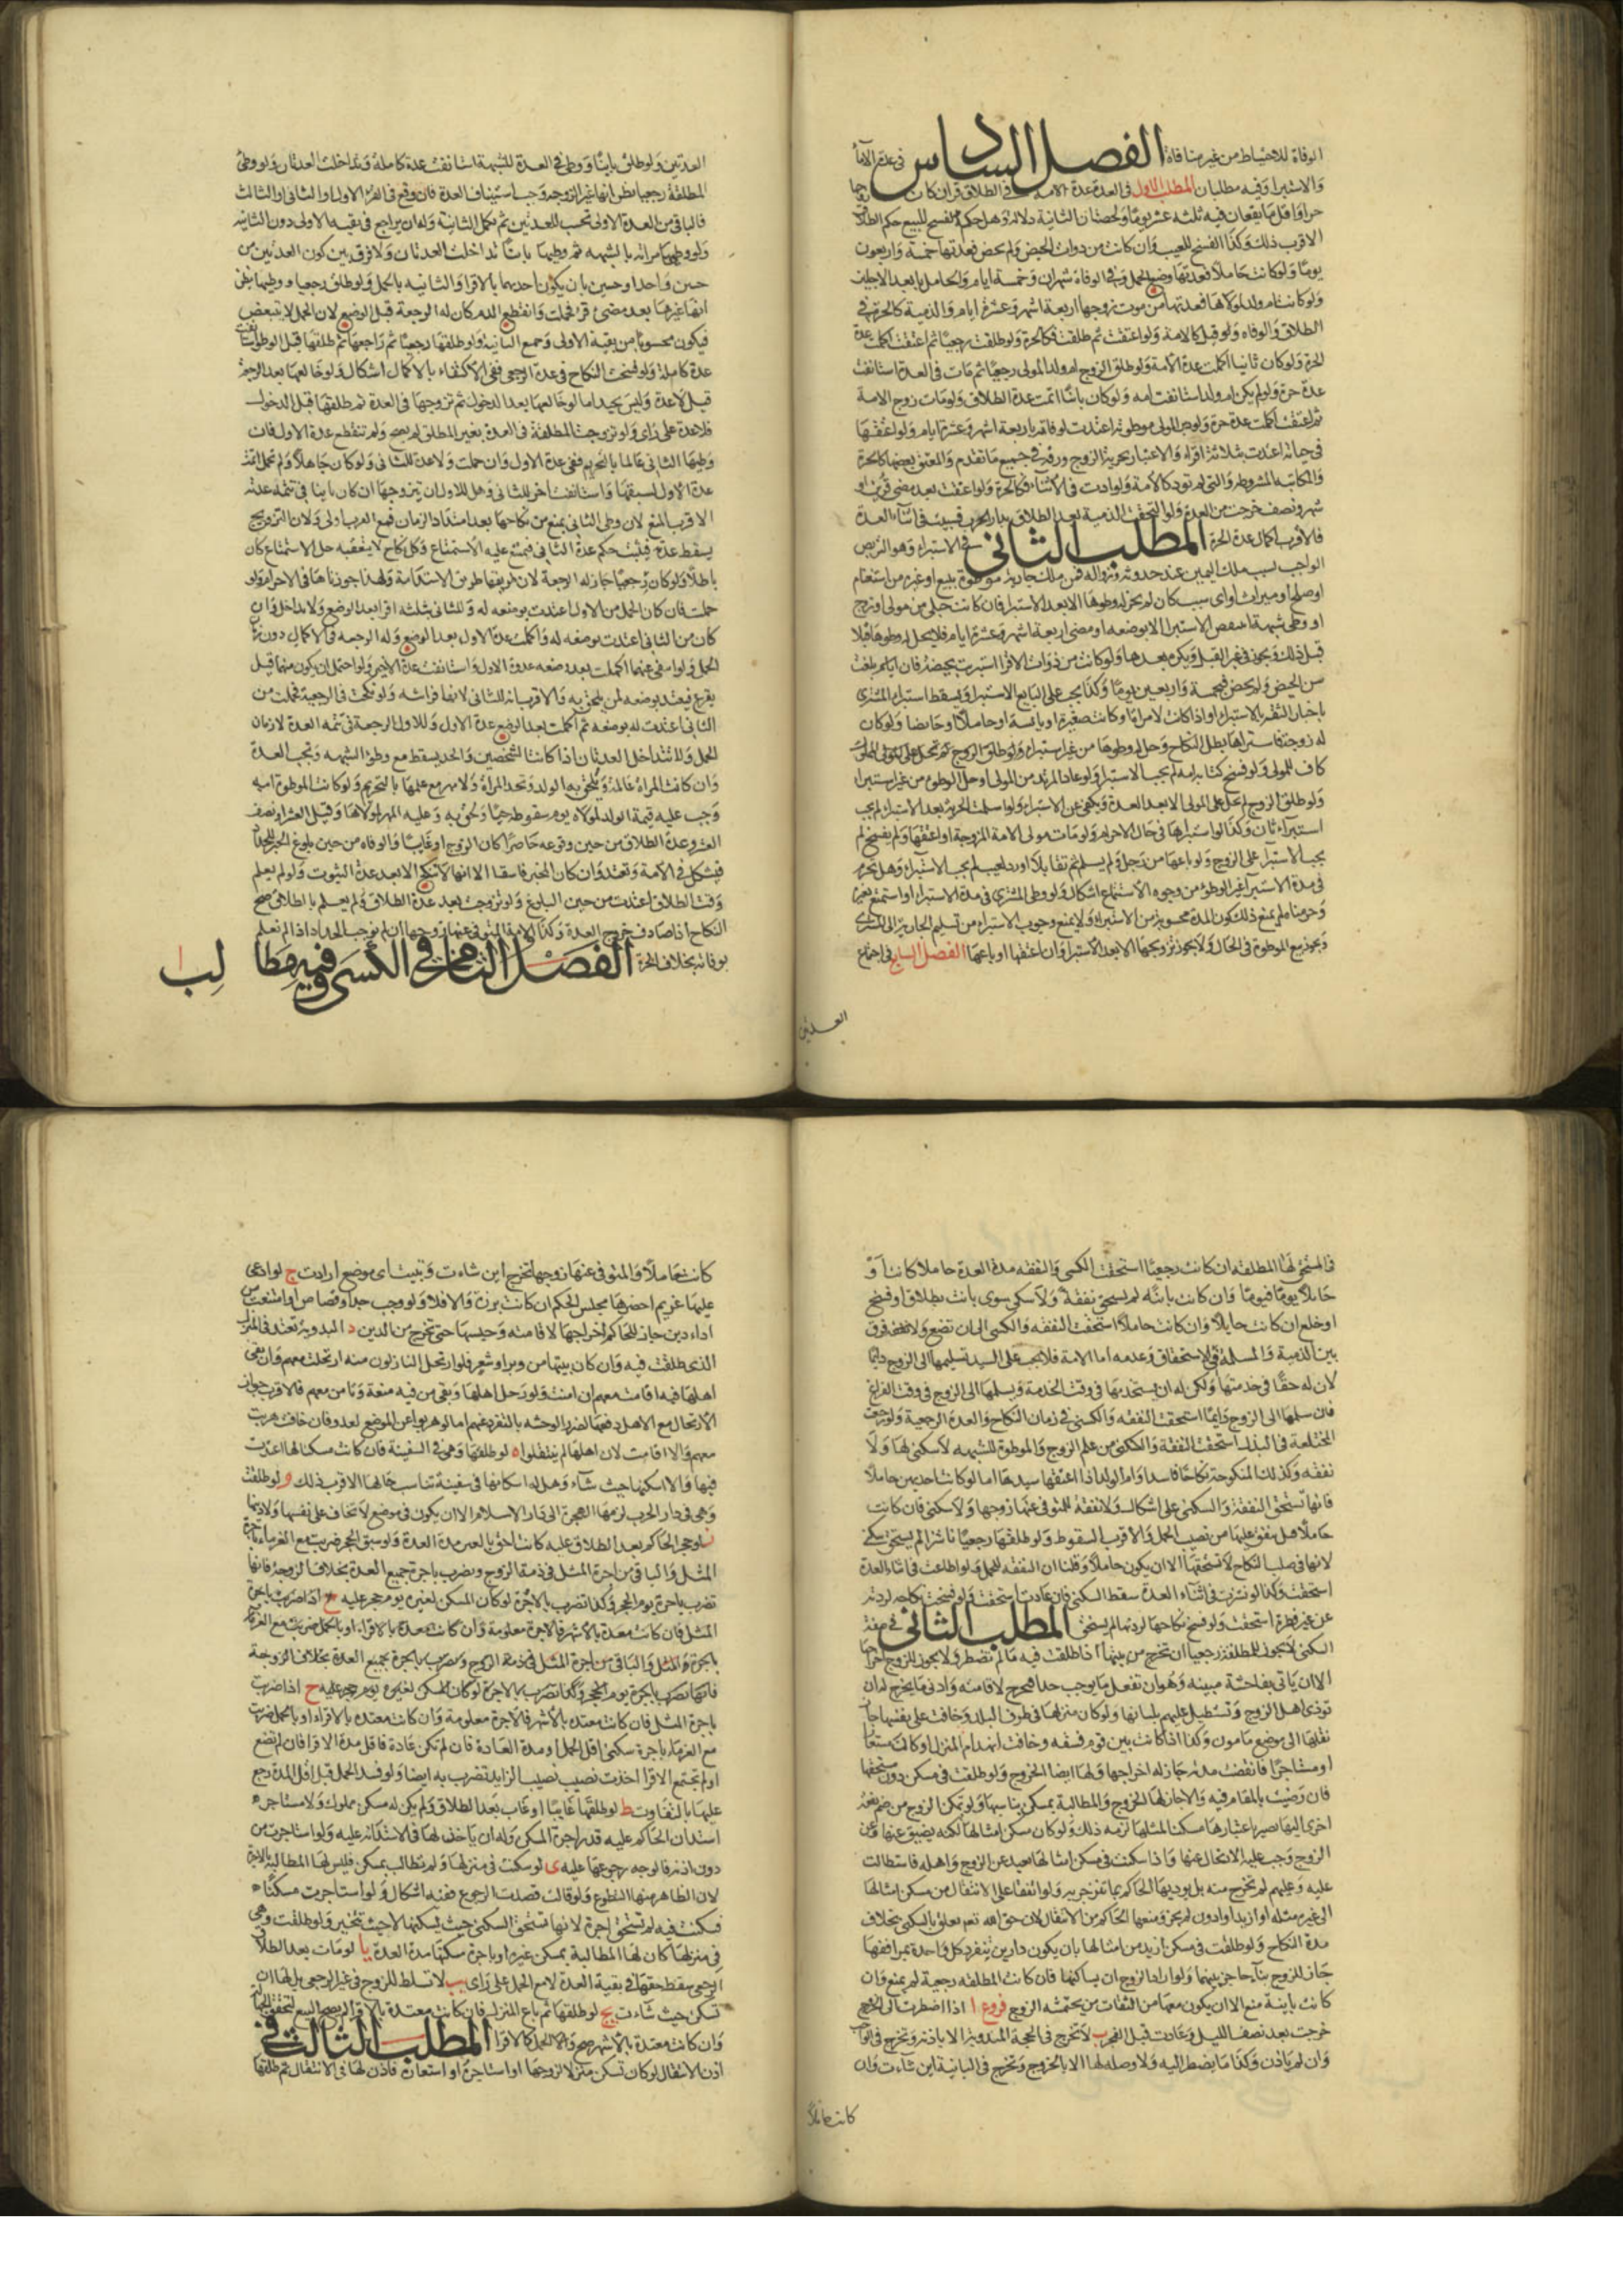 الوفاة للاحتياط من غير منافاة الفصل السادس في عدة الاماء
والاستبراء وفيه مطلبان المطلب الاول في العدة عدة الامة في الطلاق قران كان زوجها
حرا او عبدا واقل ما يقعان فيه ثلثة عشر يوما ولحظتان الثانية دلالة وهل حكم الفسخ للبيع حكم الطلاق
الاقرب ذلك وكذا الفسخ للعيب وان كانت من ذوات الحيض ولم تحض فعدتها خمسة واربعون
يوما ولو كانت حاملا فعدتها وضع الحمل وفي الوفاة شهران وخمسة ايام والحامل بابعد الاجلين
ولو كانت ام ولد لمولاها فعدتها من موت زوجها اربعة اشهر وعشرة ايام والذمية كالحرة في
الطلاق والوفاه ولو قيل كالامة ولو اعتقت ثم طلقت فكالحرة ولو طلقت رجعيا ثم اعتقت اكملت عدة
الحرة ولو كان باينا اكملت عدة الامة ولو طلق الزوج ام ولد المولى رجعيا ثم مات في العدة استانفت
عدة حرة ولو لم يكن ام ولد استانفت امة ولو كان باينا اتمت عدة الطلاق ولو مات زوج الامة
ثم اعتقت اكملت عدة حرة ولو كان المولى موطوئة اعتدت لوفاته باربعة اشهر وعشرة ايام ولو اعتقها
في حياته اعتدت بثلاثة اقراء والاعتبار بحرية الزوج ورقه في جميع ما تقدم والمعتق بعضها كالحرة
والمكاتبة المشروطة والتي لم تود كالامة ولو ادت في الاثناء فكالحرة ولو اعتقت بعد مضي قرئين او
شهر ونصف خرجت من العدة ولو التحقت الذمية بعد الطلاق بدار الحرب فسبيت في اثناء العدة
فالاقرب اكمال عدة الحرة المطلب الثاني في الاستبراء وهو التربص
الواجب بسبب ملك اليمين عند حدوثه وزواله فمن ملك جارية موطوءة ببيع او غيره من استغنام
او صلح او ميراث او اي سبب كان لم يجز له وطوها الا بعد الاستبراء فان كانت حبلى من مولى او زوج
او وطي شبهة لم ينقض الاستبراء الا بوضعه او مضي اربعة اشهر وعشرة ايام فلا يحل له وطوها قبلا
قبل ذلك ويجوز في غير القبل ويكره بعدها ولو كانت من ذوات الاقراء استبريت بحيضة فان لم بلغت
سن الحيض ولم تحض فبخمسة واربعين يوما وكذا يجب على البايع الاستبراء ويسقط استبراء المشتري
باخبار الثقة بالاستبراء او اذا كانت لامراة او كانت صغيرة او يائسة او حاملا او حايضا ولو كان
له زوجة فاشتراها بطل النكاح وحل له وطوها من غير استبراء ولو طلق الزوج لم تحل على المولى المملوك
كاف للمولى ولو فسخ كتابة امة لم يجب الاستبراء ولو عاد المرتد من المولى او حل الوطوء من غير استبراء
ولو طلق الزوج لم تحل على المولى الا بعد العدة ويكفي عن الاستبراء ولو اسلمت الحربية بعد الاستبراء لم يجب
استبراء ثان وكذا لو استبراها في حال الاحرام ولو مات مولى الامة المزوجة او اعتقها ولم يفسخ لم
يجب الاستبراء على الزوج ولو باعها من رجل ولم يسلم ثم تقايلا او رد لعيب لم يجب الاستبراء وهل تحرم
في مدة الاستبراء غير الوطوء من وجوه الاستمتاع اشكال ولو وطي المشتري في مدة الاستبراء او استمتع بغيره
وحرمناه لم يمنع ذلك كون المدة محسوبة من الاستبراء ولا يمنع وجوب الاستبراء من تسليم الجارية الى المشتري
ويجوز بيع الموطوءة في الحال ولا يجوز تزويجها الا بعد الاستبراء وان اعتقها او باعها الفصل السابع في اجتماع
العدتين
العدتين ولو طلق باينا ووطي في العدة للشبهة استانفت عدة كاملة وتداخلت العدتان ولو وطئ
المطلقة رجعيا بظن انها غير الزوجة وجب استيناف العدة فان وقع في القرء الاول او الثاني او الثالث
فالباقي من العدة الاولى تحسب للعدتين ثم تكمل الثانية وله ان يراجع في بقية الاولى دون الثانية
ولو وطي امراته بالشبهة ثم وطيها باينا تداخلت العدتان ولا فرق بين كون العدتين من
جنس واحد او جنسين بان يكون احديهما بالاقراء والثانية بالحمل ولو طلق رجعيا ووطيها بظن
انها غيرها بعد مضي قرء فحملت وانقطع الدم كان له الرجعة قبل الوضع لان الحمل لا يتبعض
فيكون محسوبا من بقية الاولى وجميع الثانية ولو طلقها رجعيا ثم راجعها ثم طلقها قبل الوطء استانفت
عدة كاملة ولو فسخت النكاح في عدة الرجعي ففي الاكتفاء بالاكمال اشكال ولو خالعها بعد الرجعة
قيل لا عدة وليس بجيد اما لو خالعها بعد الدخول ثم تزوجها في العدة ثم طلقها قبل الدخول
فلا عدة على راي ولو تزوجت المطلقة في العدة بغير المطلق لم يصح ولم تنقطع عدة الاول فان
وطيها الثاني عالما بالتحريم ففي عدة الاول وان حملت ولا عدة للثاني ولو كان جاهلا ولم تحمل اتمت
عدة الاول لسبقها واستانفت اخرى للثاني وهل للاول ان يتزوجها ان كان باينا في تتمة عدته
الاقرب المنع لان وطي الثاني يمنع من نكاحها بعد امتداد الزمان فمع القرب اولى ولان التزويج
يسقط عدته فيثبت حكم عدة الثاني فيمنع عليه الاستمتاع وكل نكاح لا يتعقبه حل الاستمتاع كان
باطلا ولو كان رجعيا جاز له الرجعة لان طريقها طريق الاستدامة ولهذا جوزناها في الاحرام ولو
حملت فان كان الحمل من الاول اعتدت بوضعه له وللثاني بثلثة اقراء بعد الوضع ولا تداخل وان
كان من الثاني اعتدت بوضعه له واكملت عدة الاول بعد الوضع وله الرجعة في الاكمال دون زمان
الحمل ولو انتفى عنهما اكملت بعد وضعه عدة الاول واستانفت عدة الاخير ولو احتمل ان يكون منهما قيل
يقرع فتعتد بوضعه لمن يلحق به والاقرب انه للثاني لانها فراشه ولو نكحت في الرجعية فحملت من
الثاني اعتدت له بوضعه ثم اكملت بعد الوضع عدة الاول وللاول الرجعة في تتمة العدة لا زمان
الحمل ولا تتداخل العدتان اذا كانتا لشخصين والحد يسقط مع وطؤ الشبهة وتجب العدة
وان كانت المراة عالمة ويلحق به الولد وتحد المراة ولا مهر مع علمها بالتحريم ولو كانت الموطوءة امة
وجب عليه قيمة الولد لمولاه يوم سقوطه حيا ويلحق به وعليه المهر لمولاها وقيل العشر او نصف
العشر وعدة الطلاق من حين وقوعه حاضرا كان الزوج او غايبا والوفاه من حين بلوغ الخبر للحداد
فيشكل في الامة وتعتد وان كان المخبر فاسقا الا انها لا تنكح الا بعد عدة الثبوت ولو لم يعلم
وقت الطلاق اعتدت من حين البلوغ ولو تزوجت بعد عدة الطلاق ولم يعلم بالطلاق صح
النكاح اذا صادف خروج العدة وكذا الامة المتوفى عنها زوجها ان لم نوجب الحداد اذا لم تعلم
بوفاته بخلاف الحرة الفصل الثامن في السكنى وفيه مطالب ا
فالمستحق لها المطلقة ان كانت رجعيا استحقت السكنى والنفقة مدة العدة حاملا كانت او
حايلا يوما فيوما وان كانت باينة لم تستحق نفقة ولا سكنى سوى بانت بطلاق او فسخ
او خلع ان كانت حايلا وان كانت حاملا استحقت النفقة والسكنى الى ان تضع ولا فرق
بين الذمية والمسلمة في الاستحقاق وعدمه اما الامة فلا يجب على السيد تسليمها الى الزوج دايما
لان له حقا في خدمتها ولكن له ان يستخدمها في وقت الخدمة ويسلمها الى الزوج في وقت الفراغ
فان سلمها الى الزوج دايما استحقت النفقة والسكنى في زمان النكاح والعدة الرجعية ولو رجعت
المختلعة في البذل استحقت النفقة والسكنى من علم الزوج والموطوءة للشبهة لا سكنى لها ولا
نفقة وكذلك المنكوحة نكاحا فاسدا وام الولد اذا اعتقها سيدها اما لو كانتا حايلين حاملا
فانها تستحق النفقة والسكنى على اشكال ولا نفقة للمتوفى عنها زوجها ولا سكنى فان كانت
حاملا قيل ينفق عليها من نصيب الحمل والاقرب السقوط ولو طلقها رجعيا ناشزا لم يستحق سكنى
لانها في صلب النكاح لا تستحقها الا ان يكون حاملا وقلنا ان النفقة للحمل ولو اطاعت في اثناء العدة
استحقت وكذا لو نشزت في اثناء العدة سقط السكنى فان عادت استحقت ولو فسخت نكاحه لردته
عن غير فطرة استحقت ولو فسخ نكاحها لردتها لم يستحق المطلب الثاني في صفة
السكنى لا يجوز للمطلقة رجعيا ان تخرج من بيتها اذا طلقت فيه ما لم تضطر ولا يجوز للزوج اخراجها
الا ان ياتي بفاحشة مبينة وهو ان تفعل ما يوجب حدا فتخرج لاقامته وادنى ما يخرج له ان
توذي اهل الزوج وتستطيل عليهم بلسانها ولو كان منزلها في طرف البلد وخافت على نفسها جاز
نقلها الى موضع مامون وكذا اذا كانت بين قوم فسقة وخافت انهدام المنزل او كان مستعارا
او مستاجرا فانقضت مدته جاز له اخراجها ولها ايضا الخروج ولو طلقت في مسكن دون مستحقها
فان رضيت بالمقام فيه والا جاز لها الخروج والمطالبة بمسكن يناسبها ولو تمكن الزوج من ضم بقعة
اخرى اليها تصير باعتبارها مسكنا لمثلها لزمه ذلك ولو كان مسكن امثالها لكنه يضيق عنها وعن
الزوج وجب عليه الارتحال عنها واذا سكنت في مسكن امثالها بعيد عن الزوج واهله فاستطالت
عليه وعليهم لم تخرج منه بل يودبها الحاكم بما تنزجر به ولو اتفقا على الانتقال من مسكن امثالها
الى غيره مثله او ازيد او ادون لم يجز ومنعها الحاكم من الانتقال لان حق الله تعم تعلق بالسكنى بخلاف
مدة النكاح ولو طلقت في مسكن ازيد من امثالها بان يكون دارين تنفرد كل واحدة بمرافقها
جاز للزوج بناء حاجز بينهما ولو اراد الزوج ان يساكنها فان كانت المطلقة رجعية لم يمنع وان
كانت باينة منع الا ان يكون معها من الثقات من يحتشمه الزوج فروع ا اذا اضطرت الى الخروج
خرجت بعد نصف الليل وعادت قبل الفجر ب لا تخرج في الحجة المندوبة الا باذنه وتخرج في الواجب
وان لم ياذن وكذا ما يضطر اليه ولا وصلة لها الا بالخروج وتخرج في الباينة اين شاءت وان
كانت حاملا
كانت حاملا والمتوفى عنها زوجها تخرج اين شاءت وتبيت اي موضع ارادت ج لو ادعى
عليها غريم احضرها مجلس الحكم ان كانت برزة والا فلا ولو وجب حد او قصاص او امتنعت من
اداء دين جاز للحاكم اخراجها لاقامته وحبسها حتى تخرج من الدين د البدوية تعتد في المنزل
الذي طلقت فيه وان كان بيتها من وبر او شعر فلو ارتحل النازلون منه ارتحلت معهم وان بقى
اهلها فيه اقامت معهم ان امنت ولو رحل اهلها وبقى من فيه منعة وتامن معهم فالاقرب جواز
الارتحال مع الاهل دفعا لضرر الوحشه بالتفرد عنهم اما لو هربوا عن الموضع لعدو فان خافت هربت
معهم والا اقامت لان اهلها لم ينتقلوا ه لو طلقها وهي في السفينة فان كانت مسكنا لها اعتدت
فيها والا اسكنها حيث شاء وهل له اسكانها في سفينة تناسب حالها الاقرب ذلك و لو طلقت
وهي في دار الحرب لزمها الهجرة الى دار الاسلام الا ان يكون في موضع لا تخاف على نفسها ولا دينها
ز لو حجر الحاكم بعد الطلاق عليه كانت احق بالعين مدة العدة ولو سبق الحجر ضربت مع الغرماء باجرة
المثل والباقي من اجرة المثل في ذمة الزوج وتضرب باجرة جميع العدة بخلاف الزوجة فانها
تضرب باجرة يوم الحجر وكذا تضرب بالاجرة لو كان المسكن لغيره يوم حجر عليه ح اذا ضربت باجرة
المثل فان كانت معتدة بالاشهر فالاجرة معلومة وان كانت معتدة بالاقراء او بالحمل ضربت مع الغرماء
باجرة المثل والباقي من اجرة المثل في ذمة الزوج وتضرب باجرة جميع العدة بخلاف الزوجة
فانها تضرب باجرة يوم الحجر وكذا تضرب بالاجرة لو كان المسكن لغيره يوم حجر عليه ح اذا ضربت
باجرة المثل فان كانت معتدة بالاشهر فالاجرة معلومة وان كانت معتدة بالاقراء او بالحمل ضربت
مع الغرماء باجرة سكنى اقل الحمل او مدة العادة فان لم تكن عادة فاقل مدة الاقراء فان لم تضع
او لم تجتمع الاقراء اخذت نصيب الزايد تضرب به ايضا ولو فسد الحمل قبل اقل المدة رجع
عليها بالتفاوت ط لو طلقها غايبا او غاب بعد الطلاق ولم يكن له مسكن مملوك ولا مستاجر
استدان الحاكم عليه قدر اجرة المسكن وله ان ياذن لها في الاستدانة عليه ولو استاجرت من
دون اذنه فالوجه رجوعها عليه ى لو سكنت في منزلها ولم تطالب بمسكن فليس لها المطالبة بالاجرة
لان الظاهر منها التطوع ولو قالت قصدت الرجوع ففيه اشكال ولو استاجرت مسكنا
فسكنت فيه لم تستحق اجرة لانها تستحق السكنى حيث يسكنها لا حيث تتخير ولو طلقت وهي
في منزلها كان لها المطالبة بمسكن غيره او باجرة سكنها مدة العدة يا لو مات بعد الطلاق
الرجعي سقط حقها في بقية العدة لا مع الحمل على راي يب لا تسلط للزوج في غير الرجعي بل لها ان
تسكن حيث شاءت يج لو طلقها ثم باع المنزل فان كانت معتدة بالاقراء لم يصح البيع لتحقق الجهالة
وان كانت معتدة بالاشهر صح والحمل كالاقراء المطلب الثالث في
اذن الانتقال لو كان تسكن منزلا لزوجها او استاجره او استعاره فاذن لها في الانتقال ثم طلقها